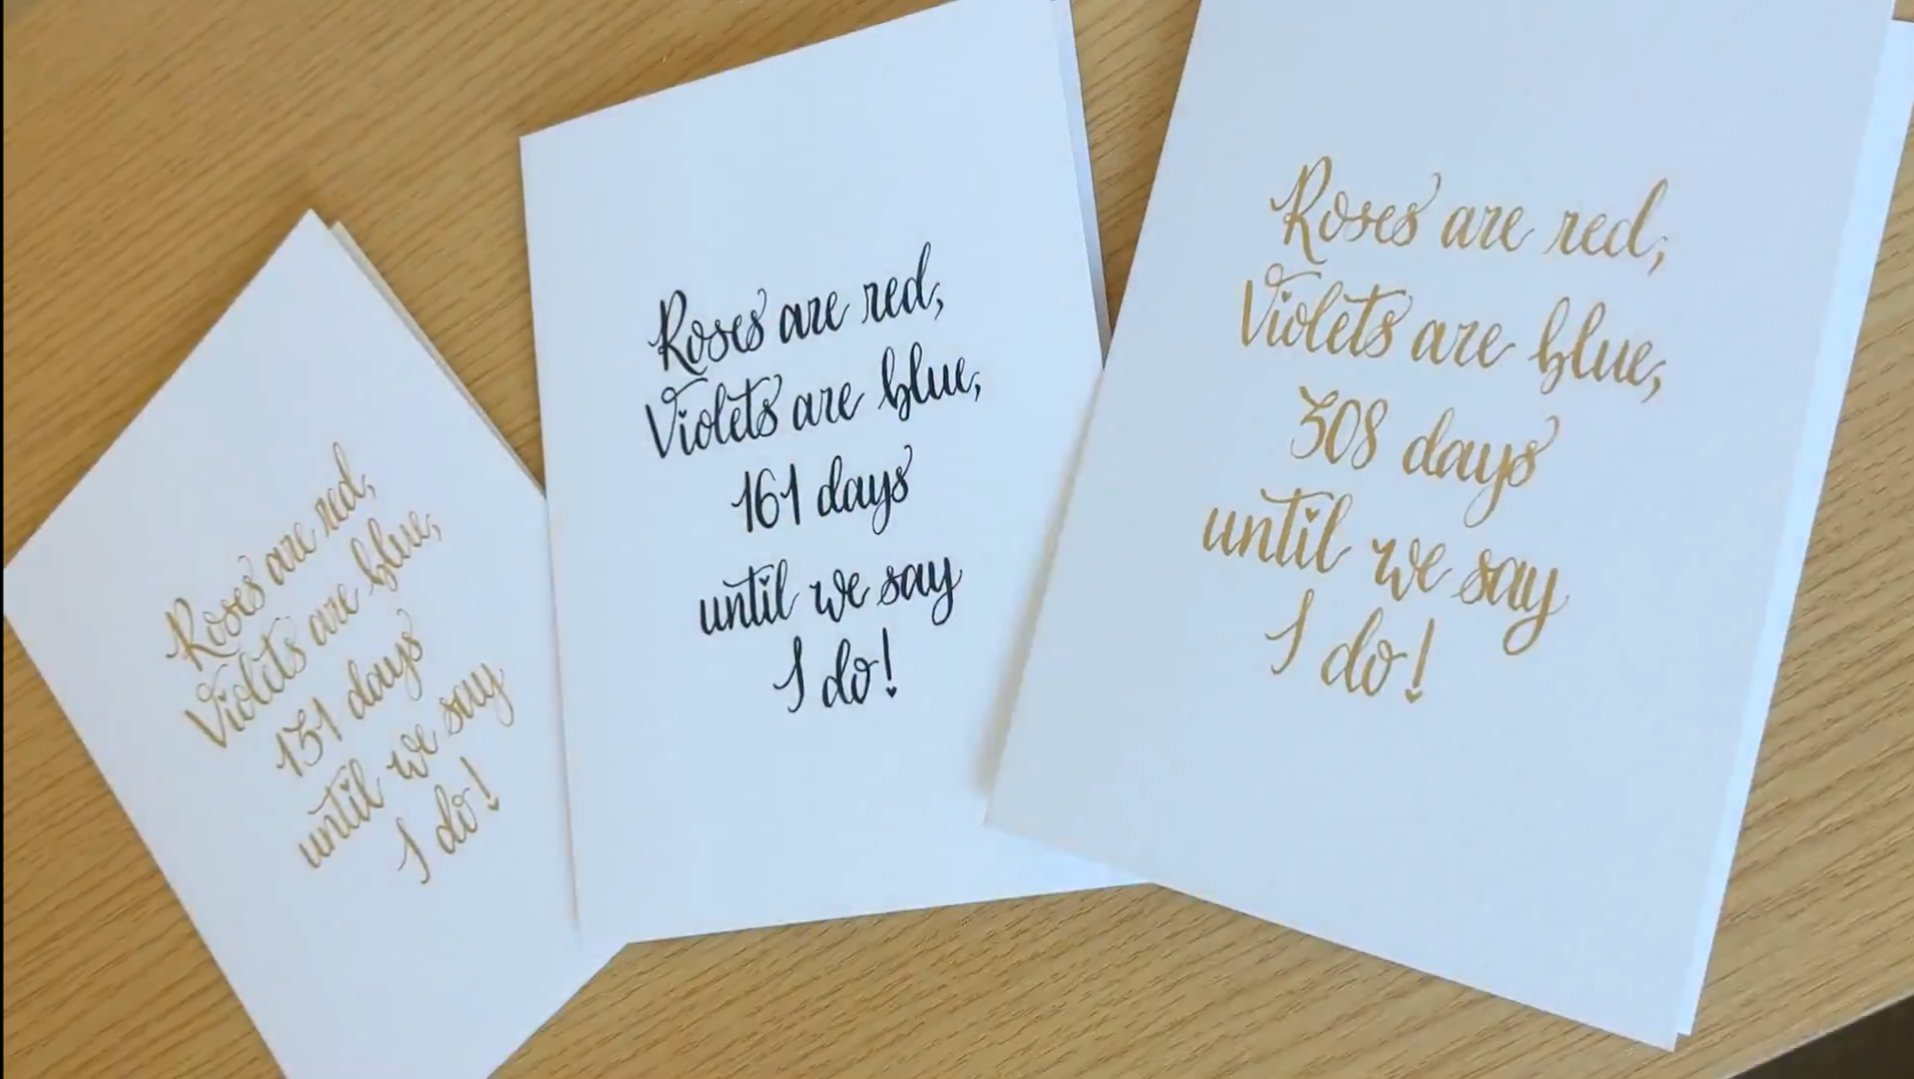 Roses are red,
Violets are blue,
131 days
until we say
I do!
Roses are red,
Violets are blue,
161 days
until we say
I do!
Roses are red,
Violets are blue,
308 days
until we say
I do!